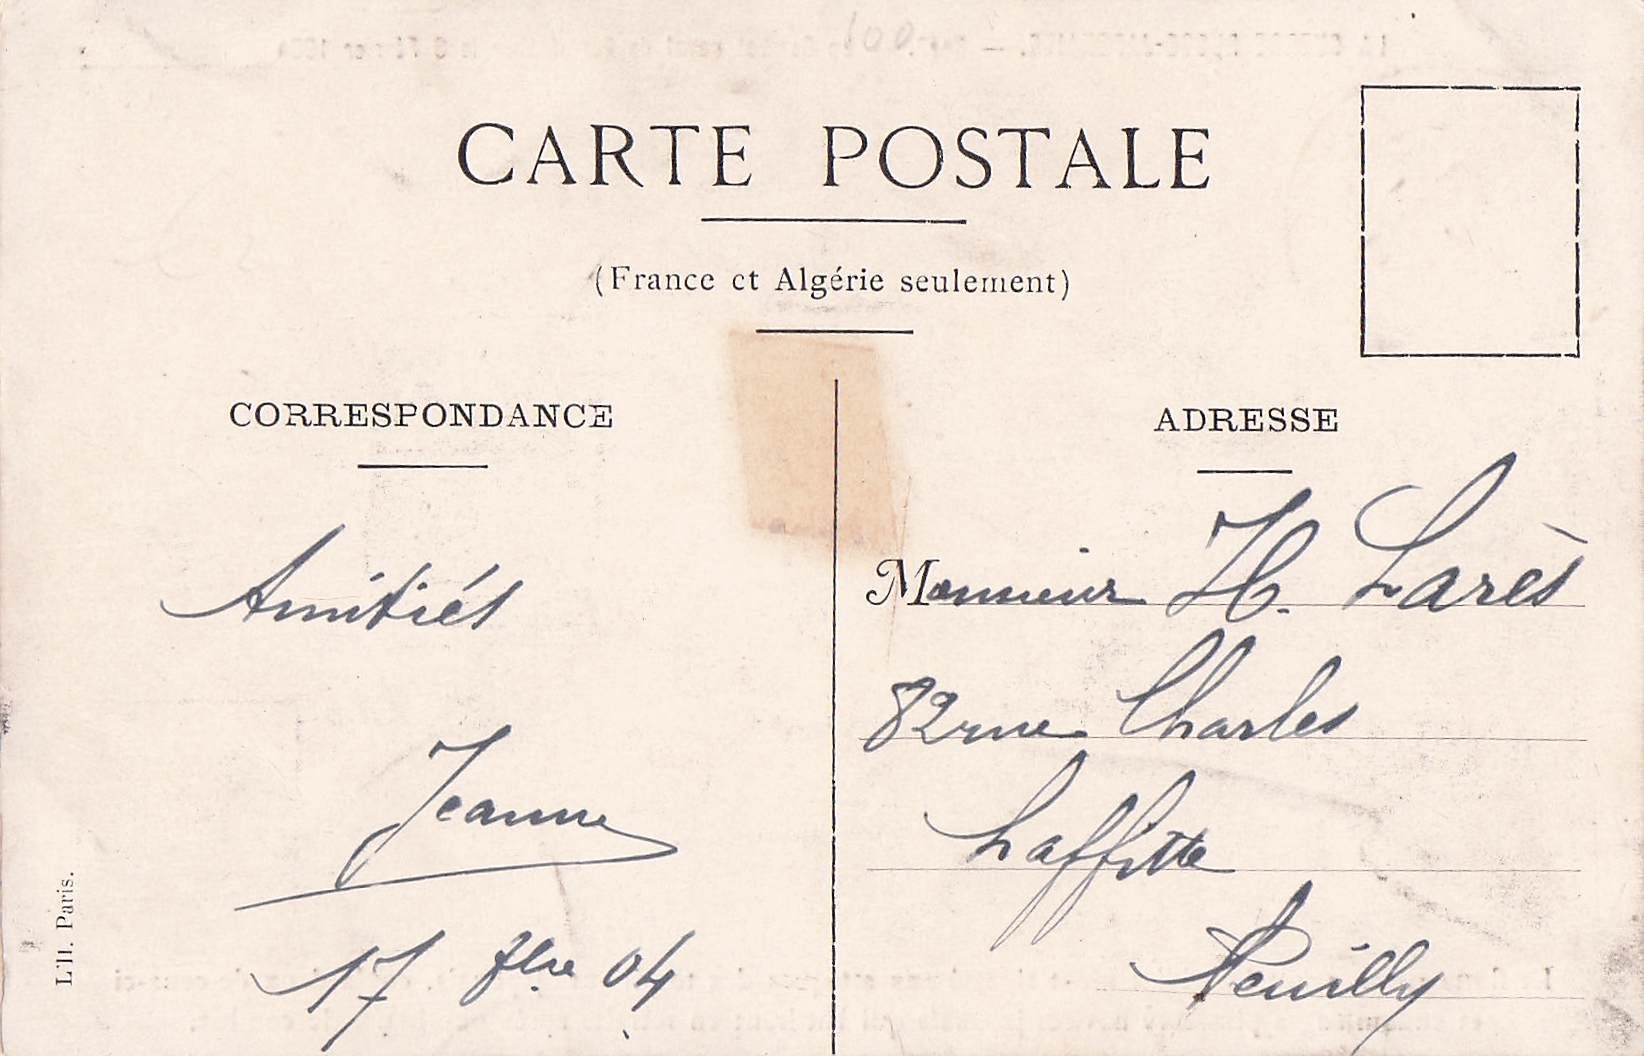 CARTE POSTALE
(France et Algérie seulement)
CORRESPONDANCE
Amitiés
Jeanne
17 7bre 04
L'Il. Paris.
ADRESSE
Monsieur H. Larès
82 rue Charles
Laffitte
Neuilly